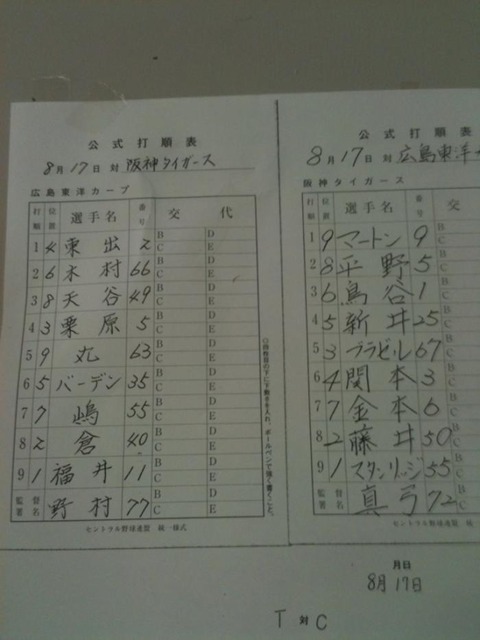 公式打順表
8月17日 対 阪神タイガース
広島東洋カープ
打順 位置 選手名 番号 交代
1 4 東出 2 B C D E
2 6 木村 66 B C D E
3 8 天谷 49 B C D E
4 3 栗原 5 B C D E
5 9 丸 63 B C D E
6 5 バーデン 35 B C D E
7 7 嶋 55 B C D E
8 2 倉 40 B C D E
9 1 福井 11 B C D E
監督署名 野村 77 B C D E
セントラル野球連盟 統一様式
公式打順表
8月17日 対 広島東洋
阪神タイガース
打順 位置 選手名 番号 交
1 9 マートン 9 B C
2 8 平野 5 B C
3 6 鳥谷 1 B C
4 5 新井 25 B C
5 3 ブラゼル 67 B C
6 4 関本 3 B C
7 7 金本 6 B C
8 2 藤井 50 B C
9 1 スタンリッジ 55 B C
監督署名 真弓 72 B C
セントラル野球連盟 統一
月日
8月17日
T 対 C